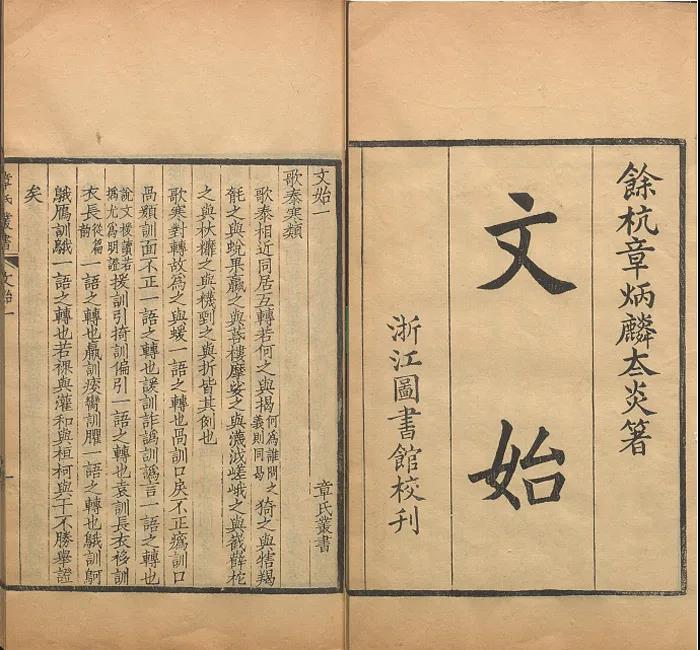 餘杭章炳麟太炎箸
文始
浙江圖書館校刊
文始一
章氏叢書
歌泰寒類
歌泰相近同居互轉若何之與揭何爲誰問之義則同曷猗之與犗羯
毻之與蛻果蠃之與苦樓摩娑之與瀎泧嵯峨之與巀嶭柁
之與杕糜之與機㔁之與折皆其例也
歌寒對轉故爲之與蝯一語之轉也咼訓口戾不正瘑訓口
咼類訓面不正一語之轉也諼訓詐譌訓譌言一語之轉也
說文援讀若撝尤爲明證援訓引掎訓偏引一語之轉也袁訓長衣移訓
衣長從篇韵一語之轉也羸訓㾓臠訓臞一語之轉也䳘訓䴚
䳘鴈訓䳘一語之轉也若裸與灌和與桓柯與干不勝舉證
矣
章氏叢書
文始一
一